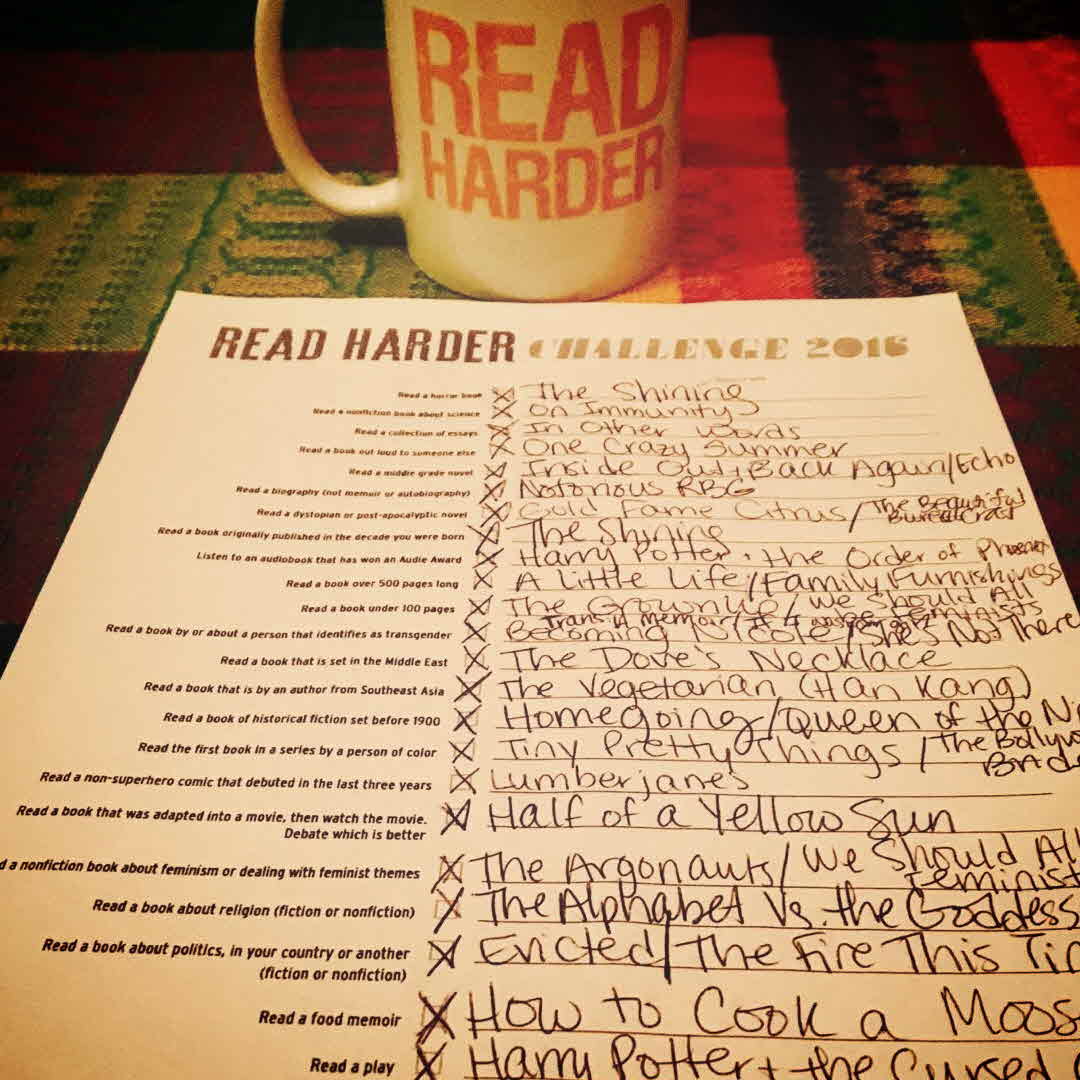 READ
HARDER
READ HARDER CHALLENGE 2016
Read a horror book The Shining
Read a nonfiction book about science On Immunity
Read a collection of essays In Other Words
Read a book out loud to someone else One Crazy Summer
Read a middle grade novel Inside Out + Back Again/Echo
Read a biography (not memoir or autobiography) Notorious RBG
Read a dystopian or post-apocalyptic novel Gold Fame Citrus/The Beautiful
Bureaucrat
Read a book originally published in the decade you were born The Shining
Listen to an audiobook that has won an Audie Award Harry Potter + the Order of Phoenix
Read a book over 500 pages long A Little Life/Family Furnishings
Read a book under 100 pages The Grownup/We Should All
Feminists
Trans: A memoir/If I was
Read a book by or about a person that identifies as transgender Becoming Nicole/She's Not There
Read a book that is set in the Middle East The Dove's Necklace
Read a book that is by an author from Southeast Asia The Vegetarian (Han Kang)
Read a book of historical fiction set before 1900 Homegoing/Queen of the N
Read the first book in a series by a person of color Tiny Pretty Things/The Bollyw
Bride
Read a non-superhero comic that debuted in the last three years Lumberjanes
Read a book that was adapted into a movie, then watch the movie. Half of a Yellow Sun
Debate which is better
d a nonfiction book about feminism or dealing with feminist themes The Argonauts/We Should All
Feminist
Read a book about religion (fiction or nonfiction) The Alphabet Vs. the Goddess
Read a book about politics, in your country or another Evicted/The Fire This Tim
(fiction or nonfiction)
Read a food memoir How to Cook a Moos
Read a play Harry Potter + the Cursed C